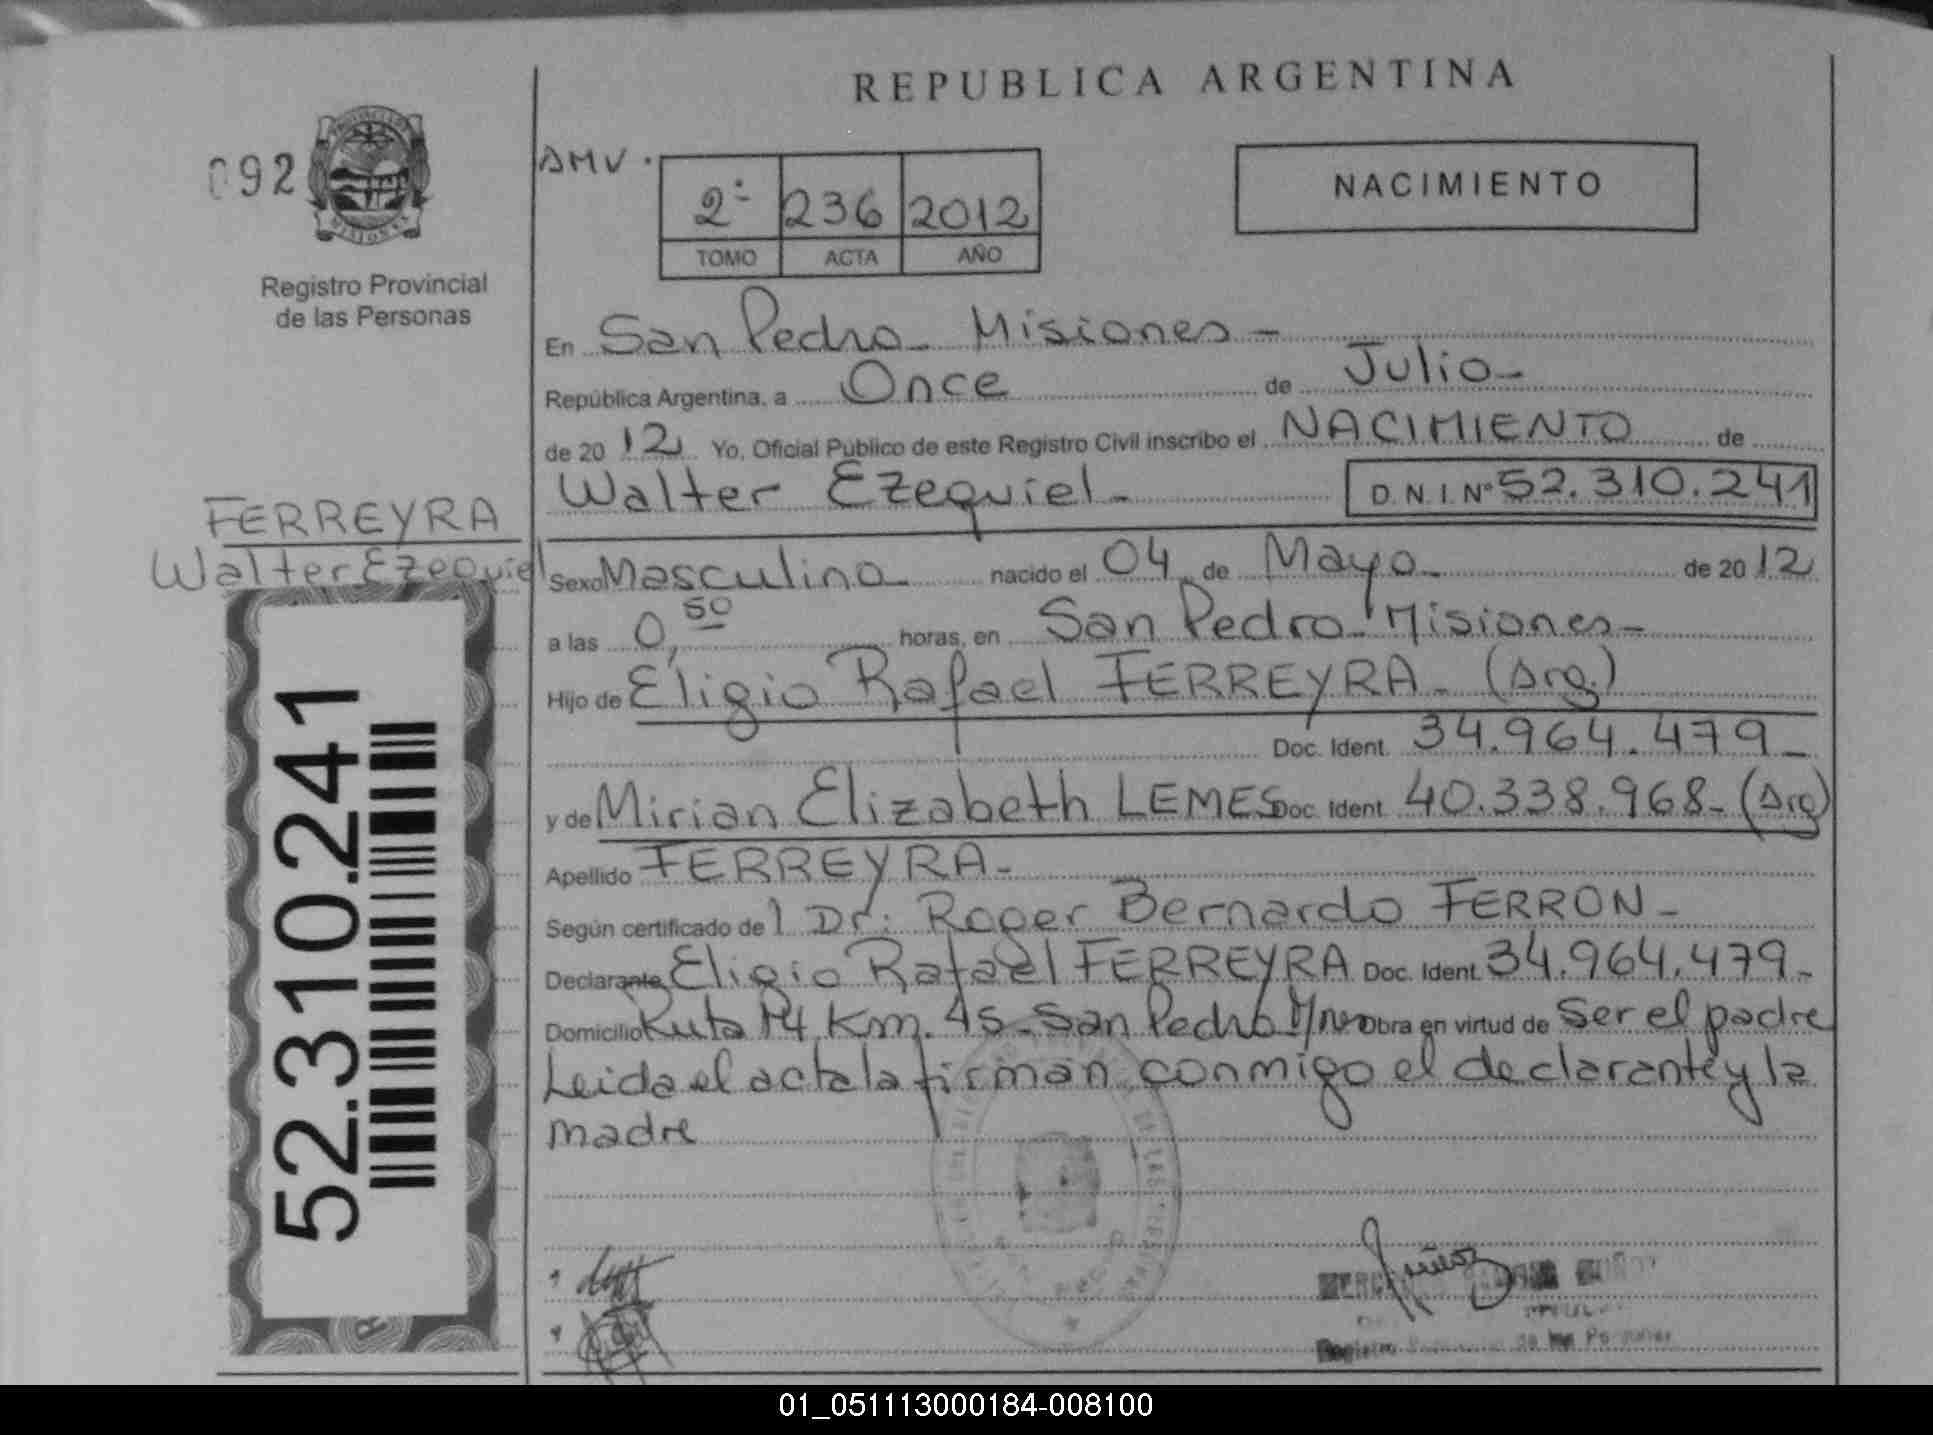 REPUBLICA ARGENTINA
092
PROVINCIA DE MISIONES
Registro Provincial
de las Personas
AMV.
2º 236 2012
TOMO ACTA AÑO
NACIMIENTO
En San Pedro - Misiones -
República Argentina, a Once de Julio -
de 2012 Yo, Oficial Público de este Registro Civil inscribo el NACIMIENTO de
Walter Ezequiel - D.N.I. Nº 52.310.241
FERREYRA
Walter Ezequiel
Sexo Masculino nacido el 04 de Mayo - de 2012
a las 0,50 horas, en San Pedro - Misiones -
Hijo de Eligio Rafael FERREYRA - (Arg.)
Doc. Ident. 34.964.479 -
y de Mirian Elizabeth LEMES Doc. Ident. 40.338.968 - (Arg)
Apellido FERREYRA -
Según certificado de l Dr: Roger Bernardo FERRON -
Declarante Eligio Rafael FERREYRA Doc. Ident. 34.964.479 -
Domicilio Ruta 14 Km. 45 - San Pedro Mnes Obra en virtud de Ser el padre
Leida el acta la firman conmigo el declarante y la
madre
52.310.241
Registro de las Personas
01_051113000184-008100